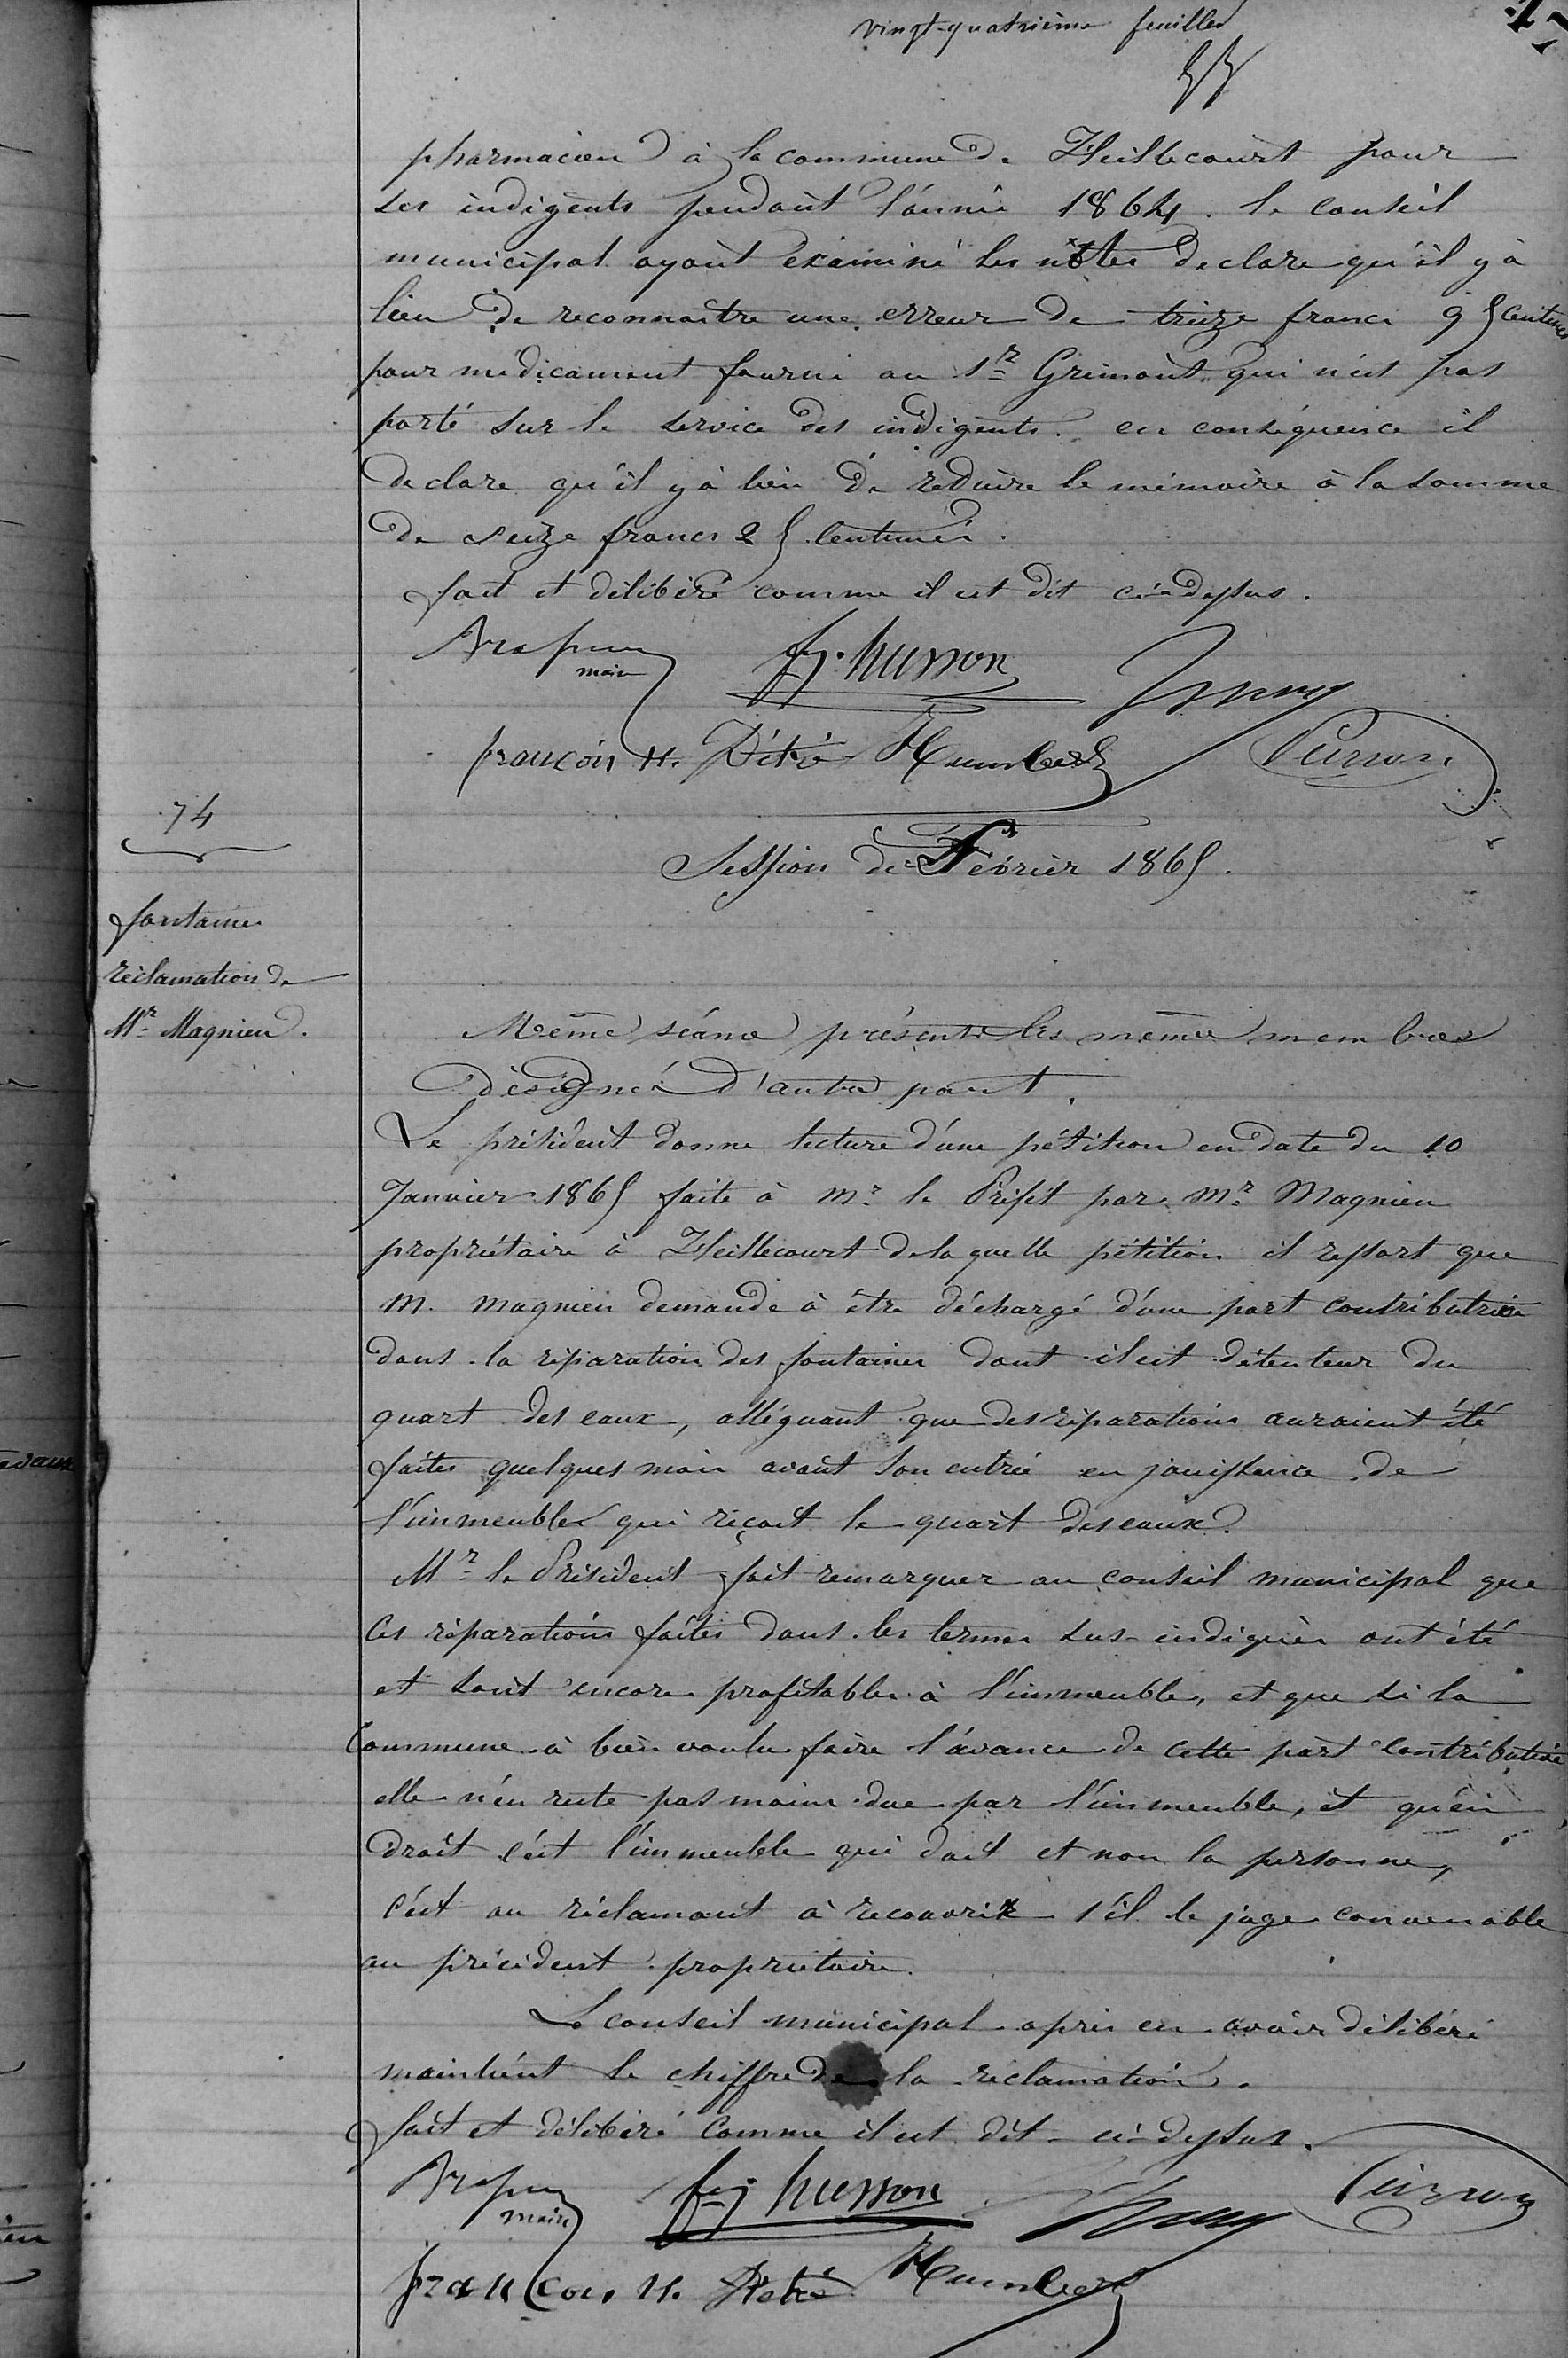 vingt-quatrième feuillet
pharmacien à la commune de Heillecourt pour
les indigents pendant l'année 1864. le conseil
municipal ayant éxaminé les notes declare qu'il y à
lieu de reconnaître une erreur de treize francs 95 centimes
pour médicament fourni au Sr Grimont qui n'est pas
porté sur le service des indigents. en conséquence il
declare qu'il y à lieu de reduire le mémoire à la somme
de seize francs 25 centimes.
fait et délibéré comme il est dit ci-dessus.
maire fs. husson
françois H. Humbert
74
Session de Février 1865.
fontaines
réclamation de
Mr Magnien.
Même séance présents les mêmes membres
désignés d'autre part.
Le président donne lecture d'une pétition en date du 10
Janvier 1865 faite à Mr le Préfet par Mr Magnien
propriétaire à Heillecourt de laquelle pétition il ressort que
M. Magnien demande à être déchargé d'une part contributrice
dans la réparation des fontaines dont il est détenteur du
quart des eaux, alléguant que des réparations auraient été
faites quelques mois avant son entrée en jouissance de
l'immeuble qui reçoit le quart des eaux.
Mr le Président fait remarquer au conseil municipal que
ces réparations faites dans les termes sus-indiqués ont été
et sont encore profitables à l'immeuble, et que si la
Commune à bien voulu faire l'avance de cette part contributive
elle n'en reste pas moins due par l'immeuble, et qu'en
droit c'est l'immeuble qui doit et non la personne,
c'est au réclamant à recouvrir s'il le juge convenable
au précédent propriétaire.
Le conseil municipal après en avoir délibéré
maintient le chiffre de la réclamation.
fait et délibéré comme il est dit ci-dessus.
maire fs husson
françois H. Humbert